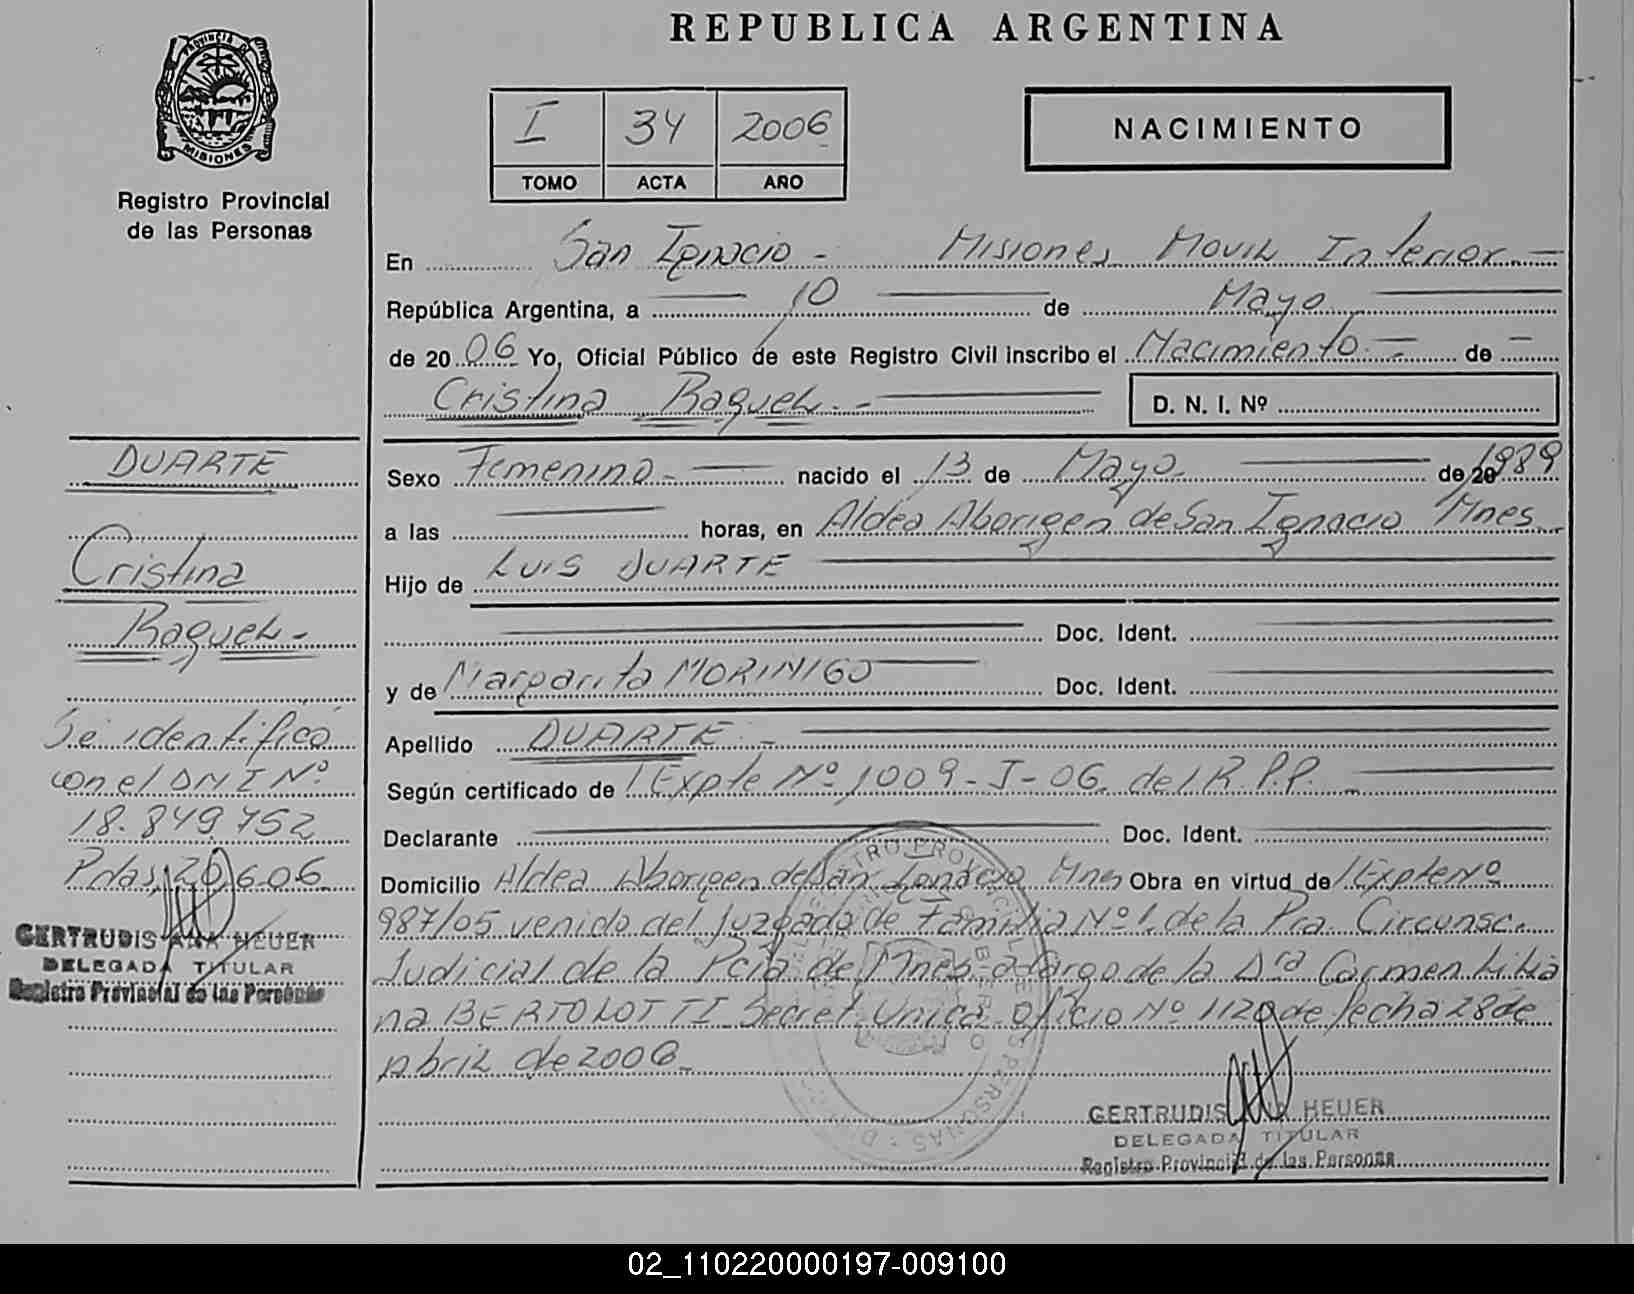 REPUBLICA ARGENTINA
PROVINCIA DE MISIONES
Registro Provincial
de las Personas
I 34 2006
TOMO ACTA AÑO
NACIMIENTO
En San Ignacio - Misiones Movil Interior -
República Argentina, a 10 de Mayo
de 2006 Yo, Oficial Público de este Registro Civil inscribo el Nacimiento.- de -
Cristina Raquel.- D. N. I. Nº
Sexo Femenino.- nacido el 13 de Mayo de 20 1989
a las horas, en Aldea Aborigen de San Ignacio Mnes
Hijo de LUIS DUARTE
Doc. Ident.
y de Margarita MORINIGO Doc. Ident.
Apellido DUARTE.-
Según certificado de Expte Nº 1009-J-06. del R.P.P.-
Declarante Doc. Ident.
Domicilio Aldea Aborigen de San Ignacio Mnes Obra en virtud de Expte Nº
987/05 venido del Juzgado de Familia Nº 1. de la Pra. Circunsc.
Judicial de la Pcia de Mnes a cargo de la Dra Carmen Lilia
na BERTOLOTTI Secret. Unica. Oficio Nº 1120 de fecha 28 de
Abril de 2006.
GERTRUDIS ANA HEUER
DELEGADA TITULAR
Registro Provincial de las Personas
DUARTE
Cristina
Raquel-
Se identificó
con el DNI Nº
18.849.752
Pdas, 20.6.06
GERTRUDIS ANA HEUER
DELEGADA TITULAR
Registro Provincial de las Personas
02_110220000197-009100